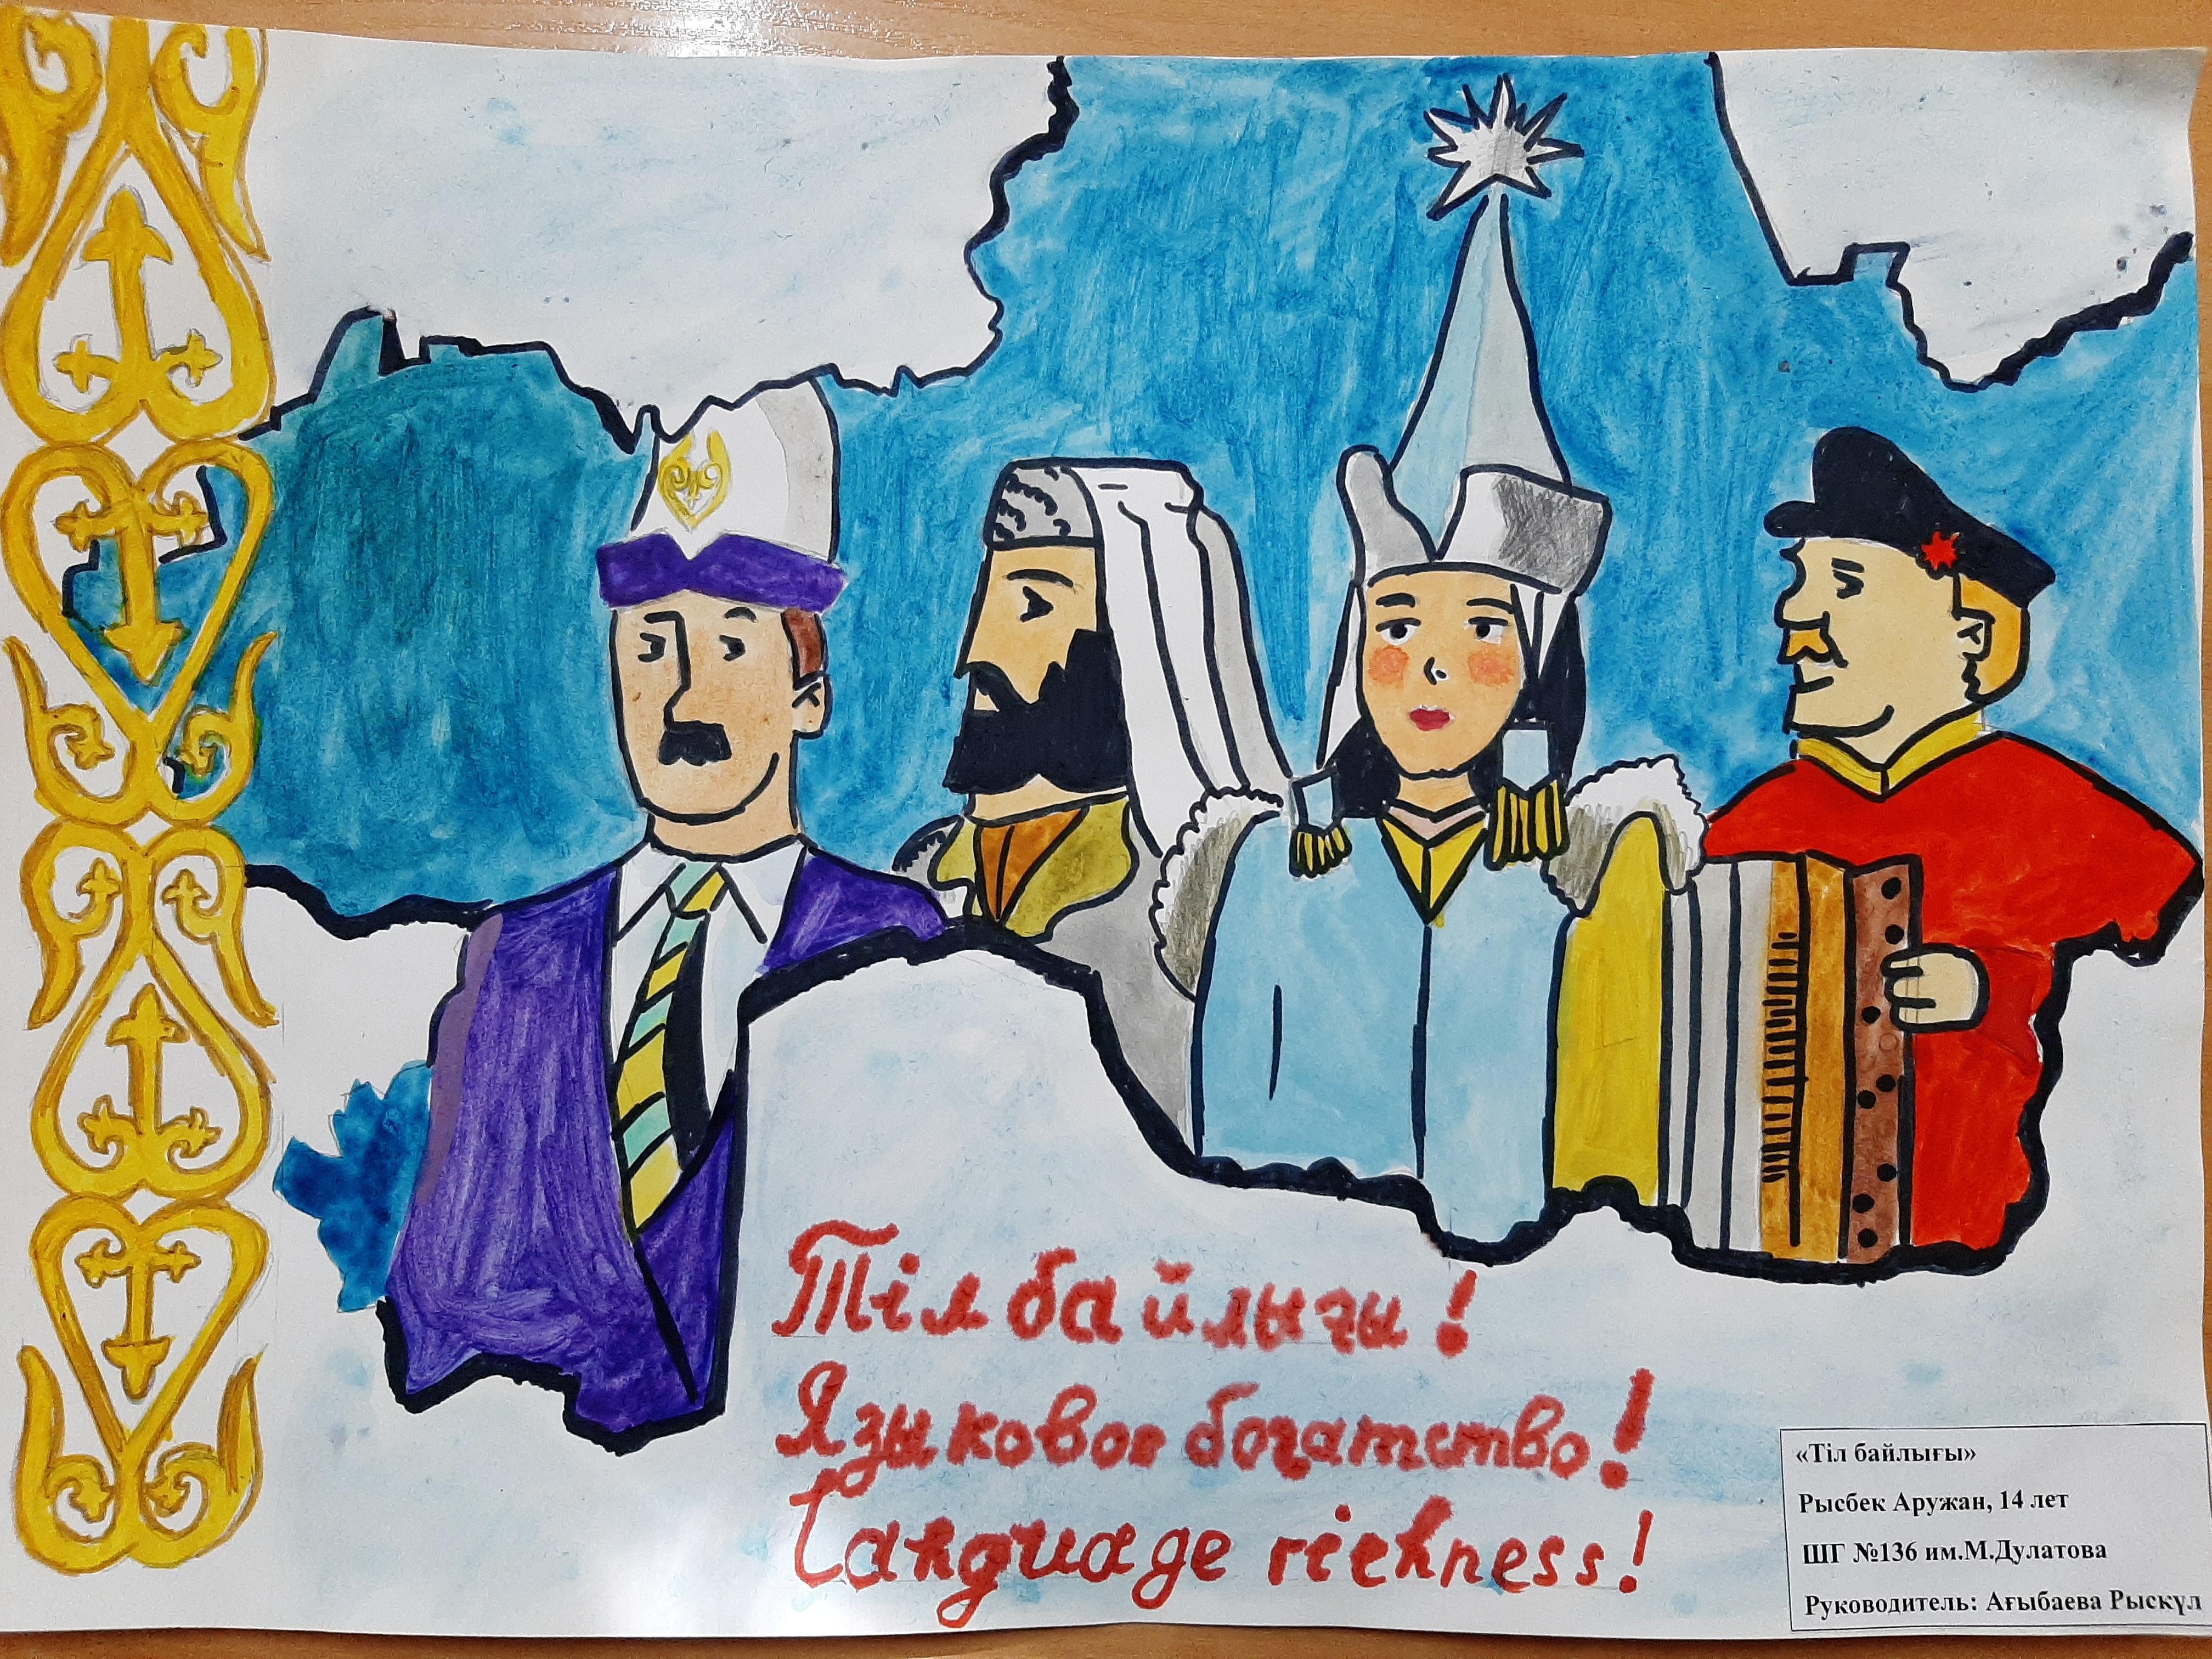 Тіл байлығы!
Языковое богатство!
Language richness!
«Тіл байлығы»
Рысбек Аружан, 14 лет
ШГ №136 им.М.Дулатова
Руководитель: Ағыбаева Рыскүл